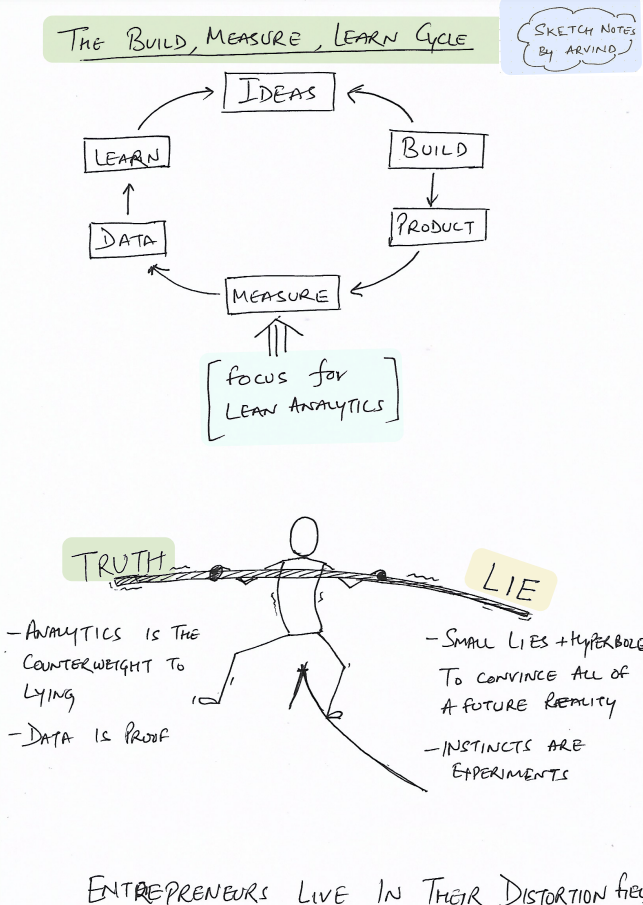 THE BUILD, MEASURE, LEARN CYCLE
SKETCH NOTES
BY ARVIND
IDEAS
LEARN
BUILD
DATA
PRODUCT
MEASURE
FOCUS FOR
LEAN ANALYTICS
TRUTH
LIE
- ANALYTICS IS THE
COUNTERWEIGHT TO
LYING
- DATA IS PROOF
- SMALL LIES + HYPERBOLE
TO CONVINCE ALL OF
A FUTURE REALITY
- INSTINCTS ARE
EXPERIMENTS
ENTREPRENEURS LIVE IN THEIR DISTORTION